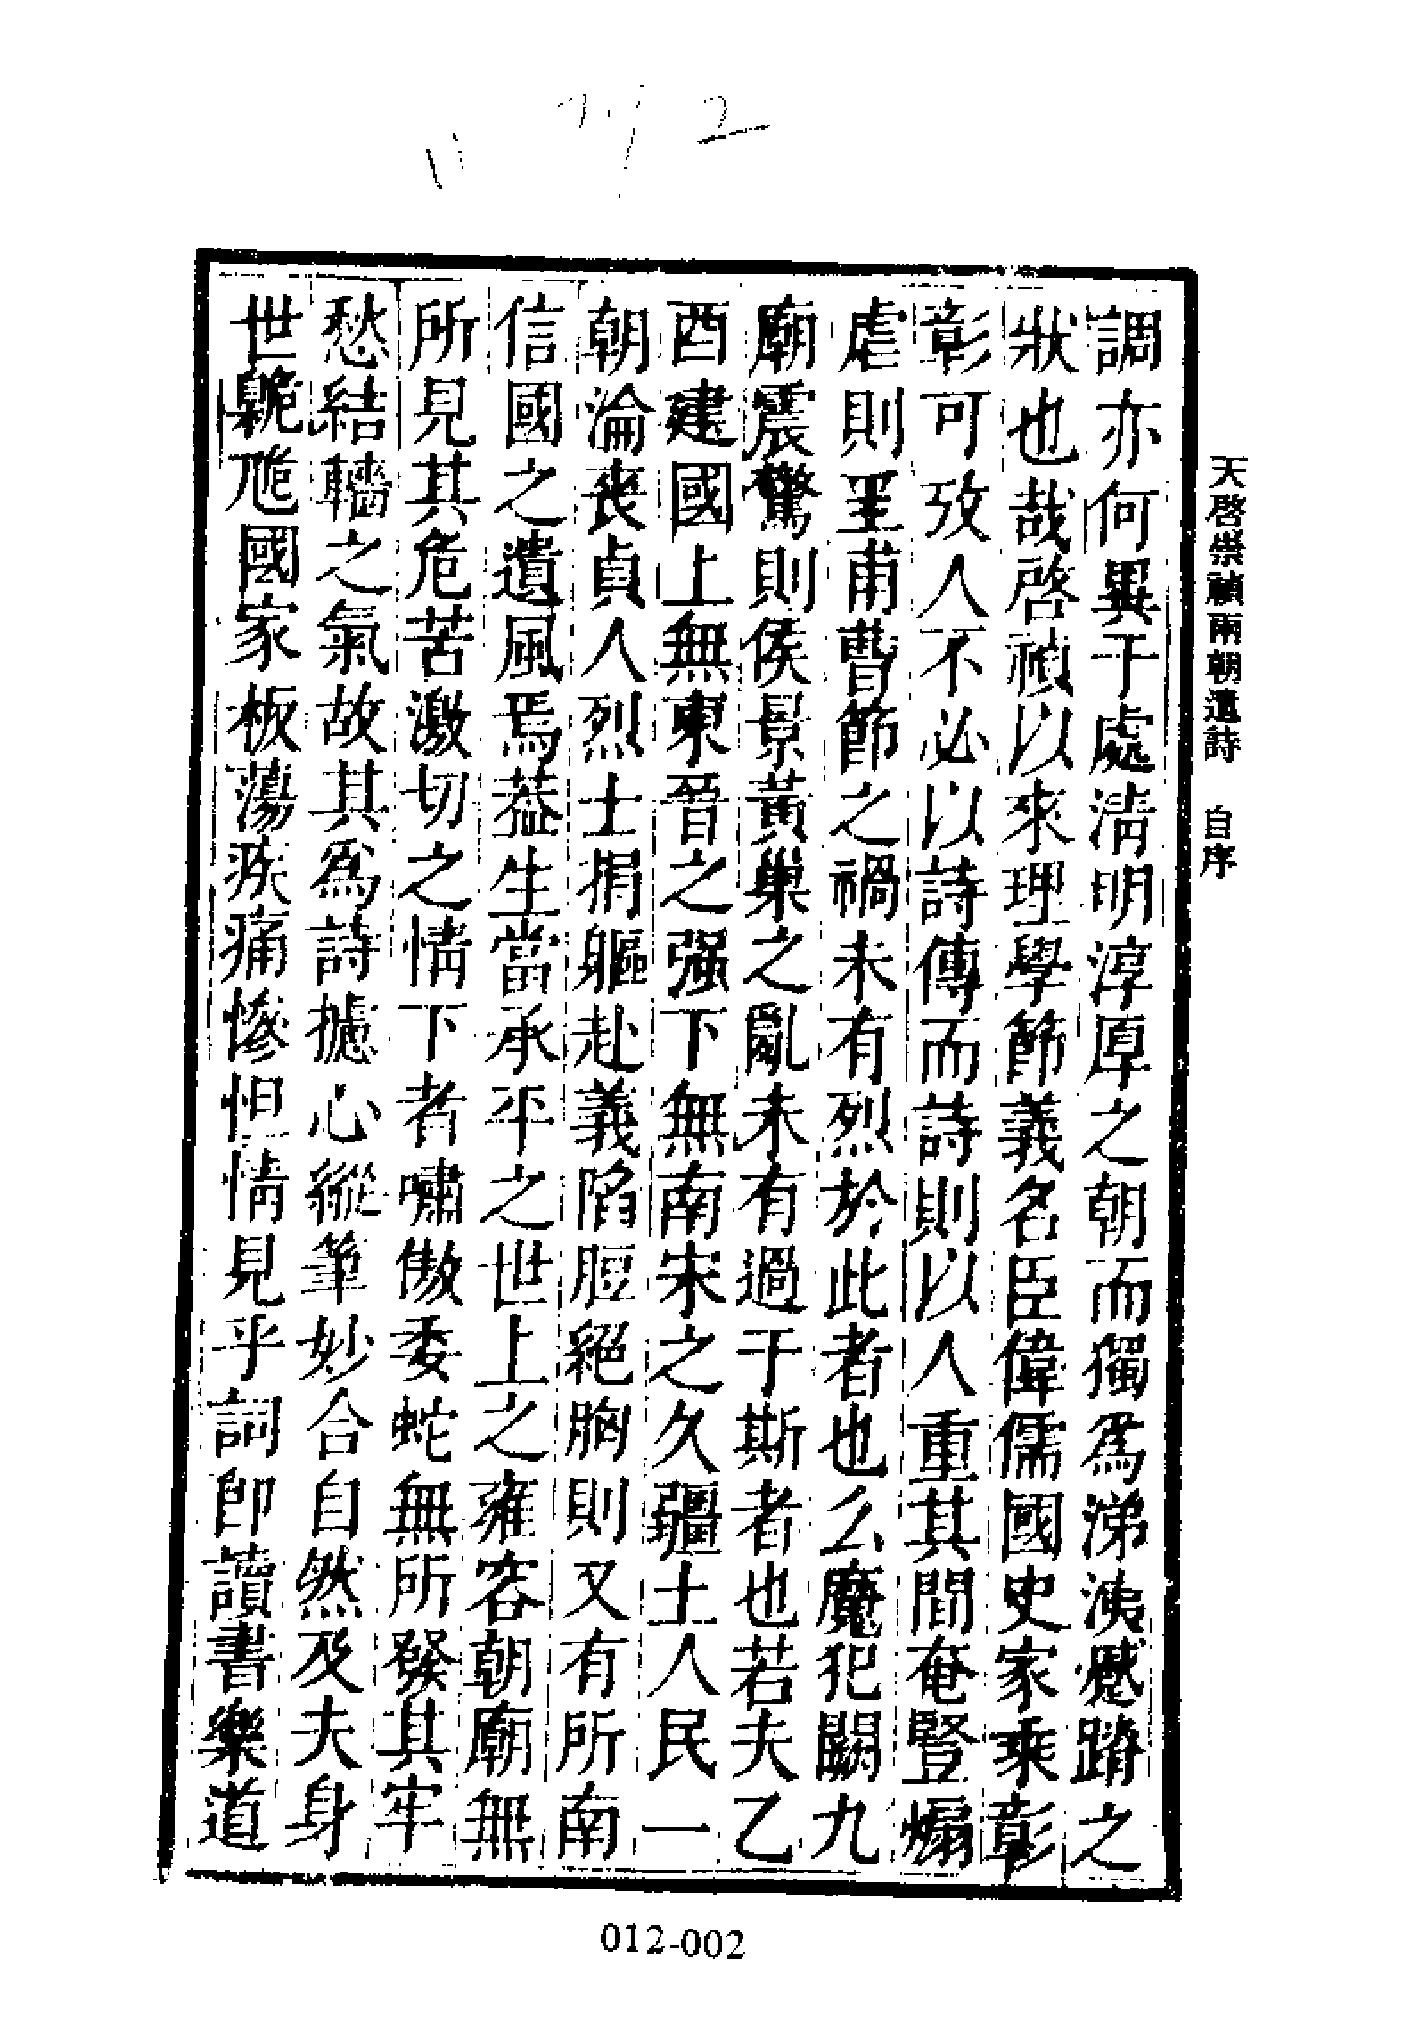 天啓崇禎兩朝遺詩　自序
調亦何異于處淸明淳厚之朝而獨爲涕洟蹙蹐之
狀也哉啓禎以來理學節義名臣偉儒國史家乘彰
彰可攷人不必以詩傳而詩則以人重其間奄豎煽
虐則里甫曹節之禍未有烈於此者也么魔犯闕九
廟震驚則侯景黃巢之亂未有過于斯者也若夫乙
酉建國上無東晉之强下無南宋之久疆土人民一
朝淪喪貞人烈士捐軀赴義陷脰絕胸則又有所南
信國之遺風焉葢生當承平之世上之雍容朝廟無
所見其危苦激切之情下者嘯傲委蛇無所發其牢
愁結轖之氣故其爲詩攄心縱筆妙合自然及夫身
世臲卼國家板蕩疾痛慘怛情見乎詞卽讀書樂道
012-002